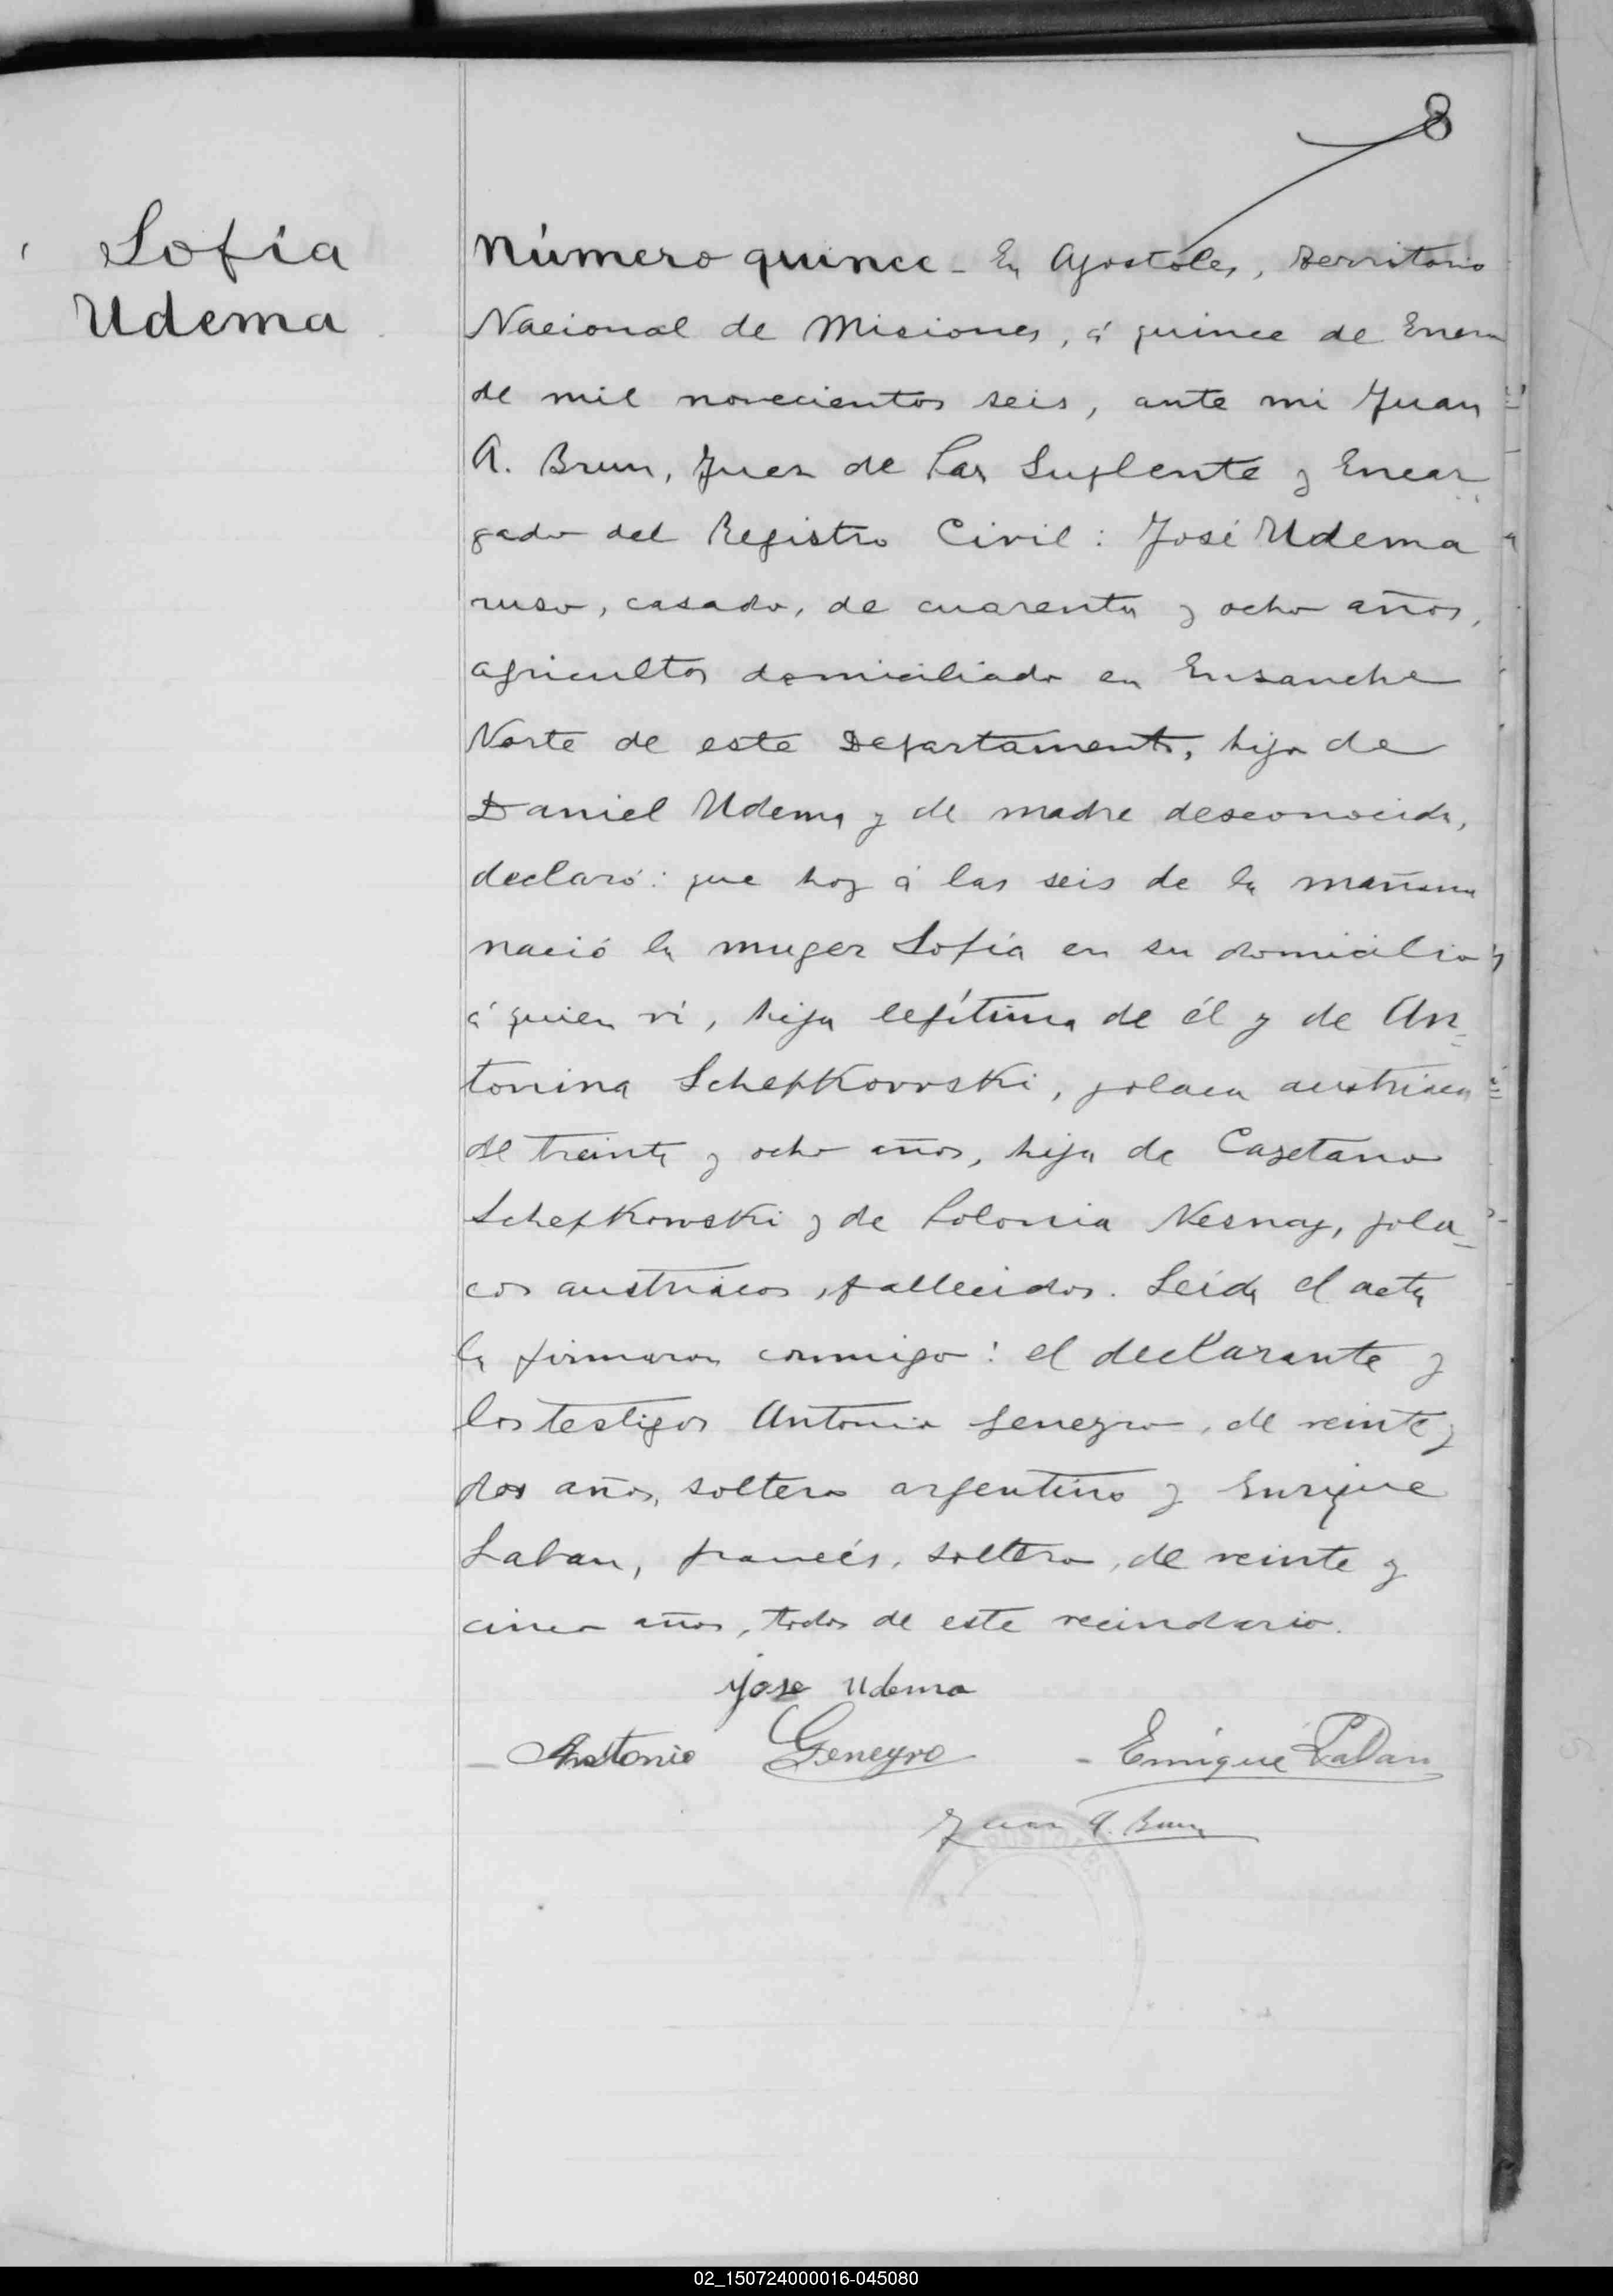 8
Sofía
Udema
Número quince - En Apostoles, Territorio
Nacional de Misiones, á quince de Enero
de mil novecientos seis, ante mi Juan
A. Brun, Juez de Paz Suplente y Encar
gado del Registro Civil: José Udema
ruso, casado, de cuarenta y ocho años,
agricultor domiciliado en Ensanche
Norte de este Departamento, hijo de
Daniel Udema y de madre desconocida,
declaró: que hoy á las seis de la mañana
nació la muger Sofía en su domicilio
á quien ví, hija legítima de él y de An-
tonina Schepkowski, polaca austriaca
de treinta y ocho años, hija de Cayetano
Schepkowski y de Polonia Nesnay, pola-
cos austriacos, fallecidos. Leida el acta
la firmaron conmigo: el declarante y
los testigos Antonio Geneyro, de veinte y
dos años, soltero argentino y Enrique
Laban, francés, soltero, de veinte y
cinco años, todos de este vecindario.
Jose Udema
Antonio Geneyro - Enrique Laban
Juan A. Brun
APOSTOLES
02_150724000016-045080